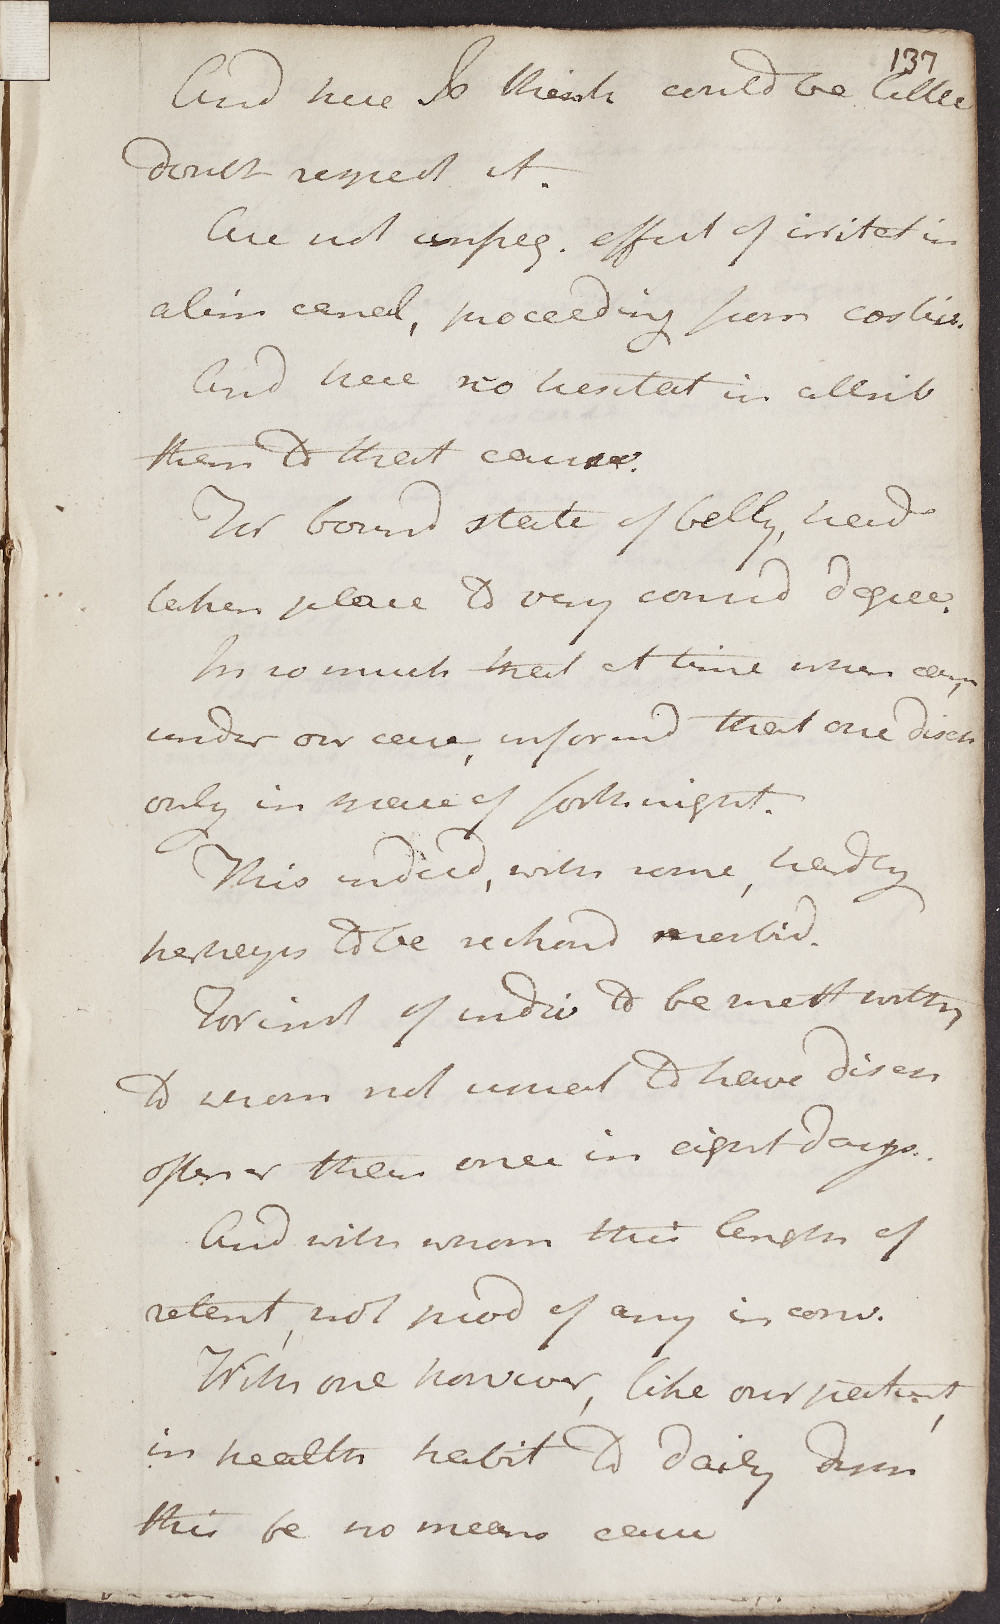 137
And here I think could be little
doubt respect it.
Are not unfreq. effect of irritat in
alim canal, proceeding from costiv.
And here no hesitat in attrib
them to that cause.
For bound state of belly, had
taken place to very consid degree.
In so much that at time when cam
under our care, informd that one disch
only in space of forthnight.
This indeed, with some, hardly
perhaps to be reckond morbid.
For inst of indiv to be mett with,
to whom not usual to have disch
oftener than once in eight days.
And with whom this length of
retent, not prod of any inconv.
With one however, like our patient,
in health habit to daily
this be no means